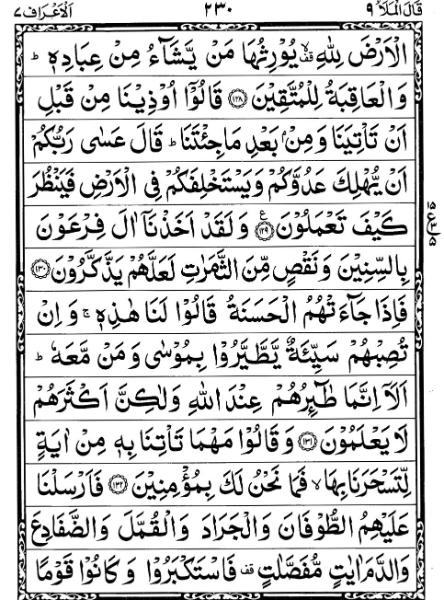 قَالَ الْمَلَاُ ٩ ٢٣٠ اَلْاَعْرَاف ٧
الْاَرْضَ لِلّٰهِ ۙ قف يُوْرِثُهَا مَنْ يَّشَآءُ مِنْ عِبَادِهٖ ؕ
وَالْعَاقِبَةُ لِلْمُتَّقِيْنَ ﴿١٢٨﴾ قَالُوْۤا اُوْذِيْنَا مِنْ قَبْلِ
اَنْ تَاْتِيَنَا وَمِنْۢ بَعْدِ مَا جِئْتَنَا ؕ قَالَ عَسٰى رَبُّكُمْ
اَنْ يُّهْلِكَ عَدُوَّكُمْ وَيَسْتَخْلِفَكُمْ فِى الْاَرْضِ فَيَنْظُرَ
كَيْفَ تَعْمَلُوْنَ ﴿١٢٩﴾ ع وَلَقَدْ اَخَذْنَاۤ اٰلَ فِرْعَوْنَ
بِالسِّنِيْنَ وَنَقْصٍ مِّنَ الثَّمَرٰتِ لَعَلَّهُمْ يَذَّكَّرُوْنَ ﴿١٣٠﴾
فَاِذَا جَآءَتْهُمُ الْحَسَنَةُ قَالُوْا لَنَا هٰذِهٖ ۚ وَاِنْ
تُصِبْهُمْ سَيِّئَةٌ يَّطَّيَّرُوْا بِمُوْسٰى وَمَنْ مَّعَهٗ ؕ
اَلَاۤ اِنَّمَا طٰٓئِرُهُمْ عِنْدَ اللّٰهِ وَلٰكِنَّ اَكْثَرَهُمْ
لَا يَعْلَمُوْنَ ﴿١٣١﴾ وَقَالُوْا مَهْمَا تَاْتِنَا بِهٖ مِنْ اٰيَةٍ
لِّتَسْحَرَنَا بِهَا ۙ فَمَا نَحْنُ لَكَ بِمُؤْمِنِيْنَ ﴿١٣٢﴾ فَاَرْسَلْنَا
عَلَيْهِمُ الطُّوْفَانَ وَالْجَرَادَ وَالْقُمَّلَ وَالضَّفَادِعَ
وَالدَّمَ اٰيٰتٍ مُّفَصَّلٰتٍ قف فَاسْتَكْبَرُوْا وَكَانُوْا قَوْمًا